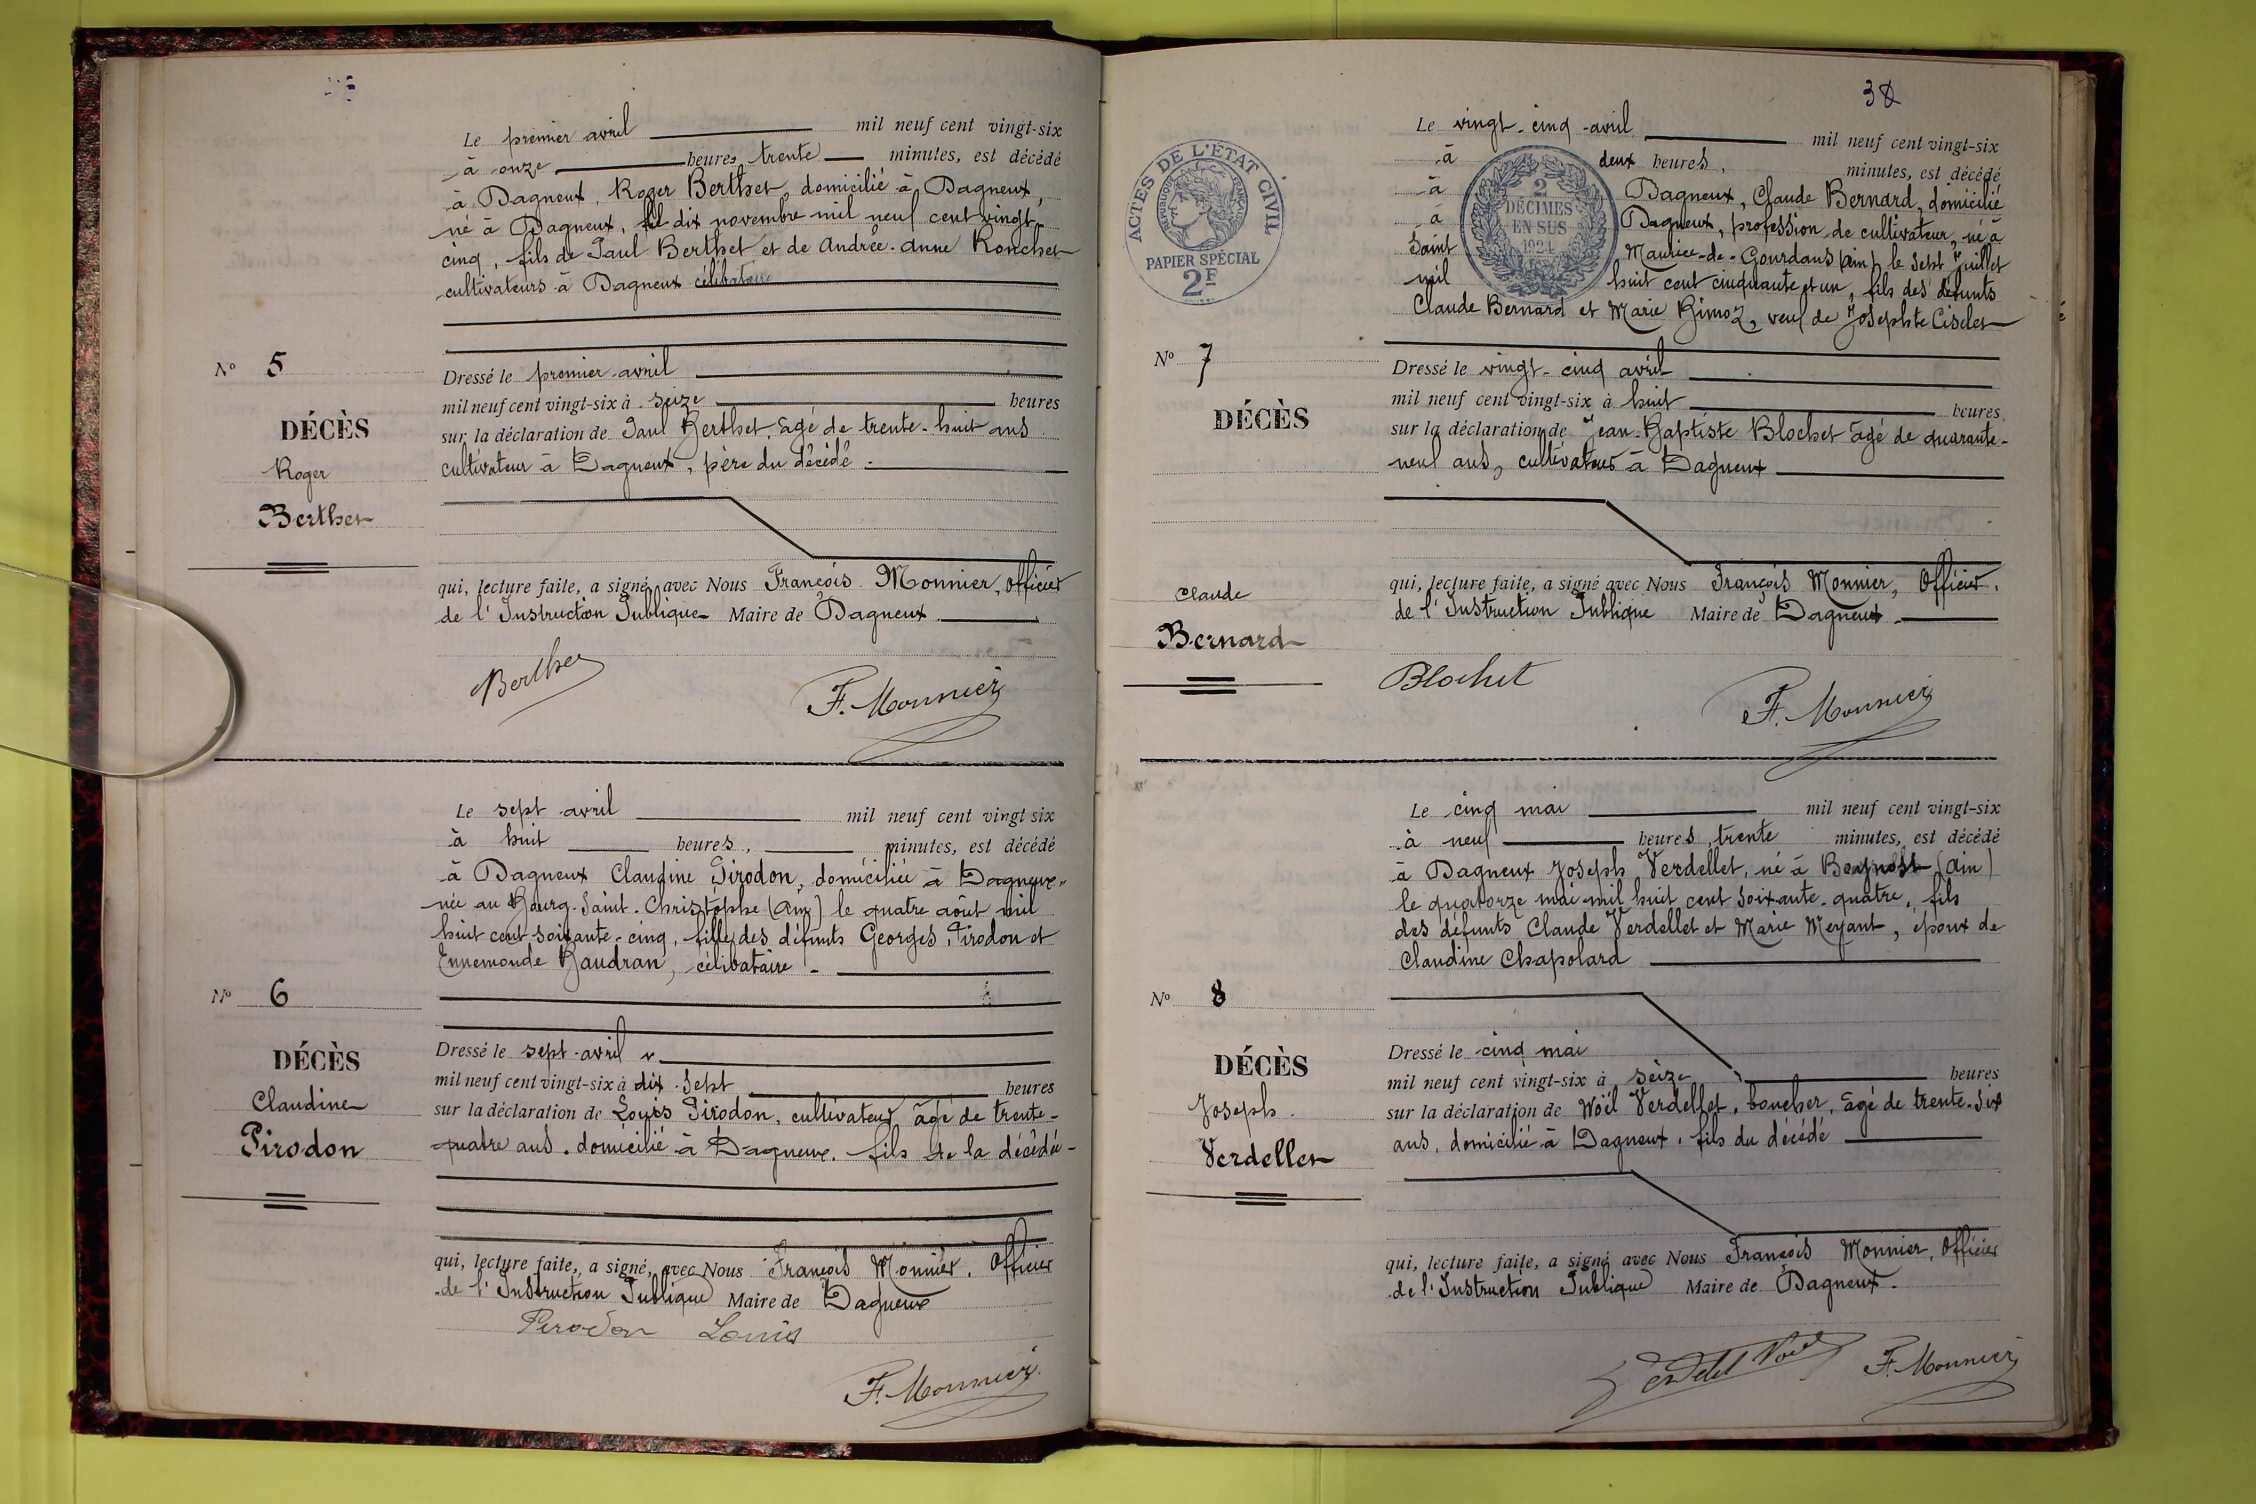 Le premier avril mil neuf cent vingt-six
à onze heures trente minutes, est décédé
à Dagneux, Roger Berthet, domicilié à Dagneux,
né à Dagneux, le dix novembre mil neuf cent vingt-
cinq, fils de Paul Berthet et de Andrée-Anne Ronchet
cultivateurs à Dagneux célibataire
N° 5
DÉCÈS
Roger
Berthet
Dressé le premier avril
mil neuf cent vingt-six à seize heures
sur la déclaration de Paul Berthet, âgé de trente-huit ans
cultivateur à Dagneux, père du décédé.
qui, lecture faite, a signé avec Nous François Monnier, Officier
de l'Instruction Publique Maire de Dagneux
Berthet
F. Monnier
Le sept avril mil neuf cent vingt six
à huit heures, minutes, est décédé
à Dagneux Claudine Pirodon, domiciliée à Dagneux,
née au Bourg-Saint-Christophe (Ain) le quatre août mil
huit cent soixante-cinq, fille des défunts Georges Pirodon et
Ennemonde Baudran, célibataire
N° 6
DÉCÈS
Claudine
Pirodon
Dressé le sept avril
mil neuf cent vingt-six à dix-sept heures
sur la déclaration de Louis Pirodon, cultivateur âgé de trente-
quatre ans, domicilié à Dagneux, fils de la décédée
qui, lecture faite, a signé, avec Nous François Monnier, Officier
de l'Instruction Publique Maire de Dagneux
Pirodon Louis
F. Monnier
38
ACTES DE L'ÉTAT CIVIL
RÉPUBLIQUE FRANÇAISE
PAPIER SPÉCIAL
2F
2
DÉCIMES
EN SUS
1924
Le vingt-cinq avril mil neuf cent vingt-six
à deux heures, minutes, est décédé
à Dagneux, Claude Bernard, domicilié
à Dagneux, profession de cultivateur, né à
Saint Maurice-de-Gourdans (Ain) le sept Juillet
mil huit cent cinquante et un, fils des défunts
Claude Bernard et Marie Rimoz, veuf de Josephte Ciselet
N° 7
DÉCÈS
Claude
Bernard
Dressé le vingt-cinq avril
mil neuf cent vingt-six à huit heures
sur la déclaration de Jean-Baptiste Blochet âgé de quarante-
neuf ans, cultivateur à Dagneux
qui, lecture faite, a signé avec Nous François Monnier, Officier
de l'Instruction Publique Maire de Dagneux
Blochet
F. Monnier
Le cinq mai mil neuf cent vingt-six
à neuf heures trente minutes, est décédé
à Dagneux Joseph Verdellet, né à Beynost (Ain)
le quatorze mai mil huit cent soixante-quatre, fils
des défunts Claude Verdellet et Marie Meyant, époux de
Claudine Chapolard
N° 8
DÉCÈS
Joseph
Verdellet
Dressé le cinq mai
mil neuf cent vingt-six à seize heures
sur la déclaration de Noël Verdellet, boucher, âgé de trente-six
ans, domicilié à Dagneux, fils du décédé
qui, lecture faite, a signé avec Nous François Monnier, Officier
de l'Instruction Publique Maire de Dagneux.
Verdellet Noël
F. Monnier